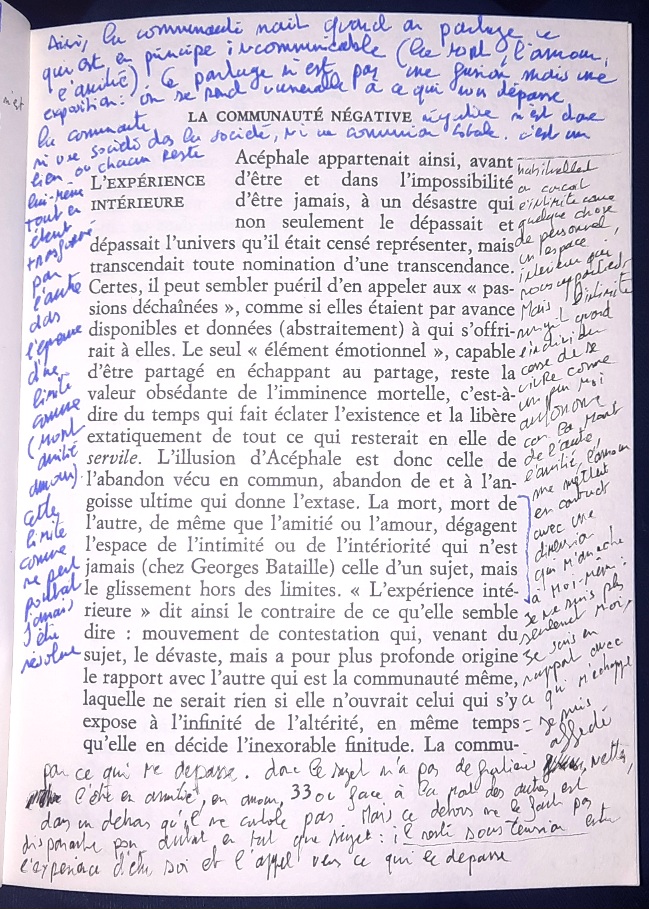 Ainsi, la communauté nait quand on partage ce
qui est en principe incommunicable (la mort, l'amour,
l'amitié). Ce partage n'est pas une fusion mais une
exposition : on se rend vulnérable à ce qui nous dépasse
la communauté négative n'est donc
ni une société dans la société, ni une communion totale. c'est un
lien où chacun reste
lui-même
tout en
étant
transformé
par
l'autre
dans
l'épreuve
d'une
limite
commune
(mort
amitié
amour).
cette
limite
commune
ne peut
pourtant
jamais
être
résolue
n'est
LA COMMUNAUTÉ NÉGATIVE
L'EXPÉRIENCE
INTÉRIEURE
Acéphale appartenait ainsi, avant
d'être et dans l'impossibilité
d'être jamais, à un désastre qui
non seulement le dépassait et
dépassait l'univers qu'il était censé représenter, mais
transcendait toute nomination d'une transcendance.
Certes, il peut sembler puéril d'en appeler aux « pas-
sions déchaînées », comme si elles étaient par avance
disponibles et données (abstraitement) à qui s'offri-
rait à elles. Le seul « élément émotionnel », capable
d'être partagé en échappant au partage, reste la
valeur obsédante de l'imminence mortelle, c'est-à-
dire du temps qui fait éclater l'existence et la libère
extatiquement de tout ce qui resterait en elle de
servile. L'illusion d'Acéphale est donc celle de
l'abandon vécu en commun, abandon de et à l'an-
goisse ultime qui donne l'extase. La mort, mort de
l'autre, de même que l'amitié ou l'amour, dégagent
l'espace de l'intimité ou de l'intériorité qui n'est
jamais (chez Georges Bataille) celle d'un sujet, mais
le glissement hors des limites. « L'expérience inté-
rieure » dit ainsi le contraire de ce qu'elle semble
dire : mouvement de contestation qui, venant du
sujet, le dévaste, mais a pour plus profonde origine
le rapport avec l'autre qui est la communauté même,
laquelle ne serait rien si elle n'ouvrait celui qui s'y
expose à l'infinité de l'altérité, en même temps
qu'elle en décide l'inexorable finitude. La commu-
habituellement
on conçoit
l'intimité comme
quelque chose
de personnel
un espace
intérieur qui
nous appartient
Mais l'intimité
quand
l'individu
cesse de se
vivre comme
un pur moi
autonome
car la mort
de l'autre,
l'amitié, l'amour
me mettent
en contact
avec une
dimension
qui m'arrache
à moi-même :
je ne suis plus
seulement moi,
je suis en
rapport avec
ce qui m'échappe
= je suis
affecté
par ce qui me dépasse. donc le sujet n'a pas de frontières nettes,
l'être en amitié, en amour, ou face à la mort des autres, est
dans un dehors qu'il ne contrôle pas. Mais ce dehors ne le fait pas
disparaitre pour autant en tant que sujet : il reste sous tension entre
l'expérience d'être soi et l'appel vers ce qui le dépasse
33